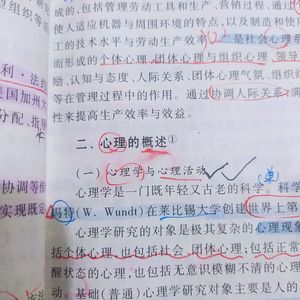 成的,包括管理劳动工具和生产、营销过程,通过
使人适应机器与周围环境的特点,以及制造和使
工的技术水平与劳动生产效率。二是社会心理系
而形成的个体心理、团体心理与组织心理、领导
励、认知与态度、人际关系、团体心理气氛、组织
等在管理过程中的作用。通过协调人际关系、满
性来提高生产效率与效益。
利·法约
美国加州大
分配、指导
协调等
实现既定
二、心理的概述①
(一)心理学与心理活动
心理学是一门既年轻又古老的科学。科学
冯特(W. Wundt)在莱比锡大学创建世界上第
心理学研究的对象是极其复杂的心理现象
括个体心理,也包括社会、团体心理;包括正常
醒状态的心理,也包括无意识模糊不清的心理
动。基础(普通)心理学研究对象主要是人的